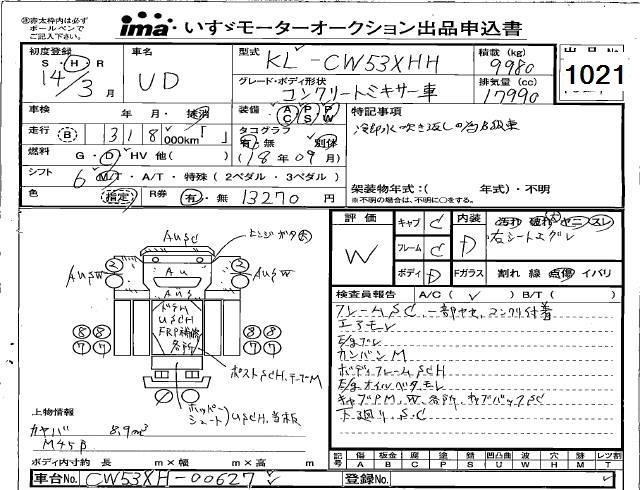 ㊟赤太枠内は必ず
ボールペンで
ご記入下さい。
ima いすゞモーターオークション出品申込書
初度登録
S・H・R
14/3月
車名
UD
型式
KL-CW53XHH
積載 (kg)
9980
グレード・ボディ形状
コンクリートミキサー車
排気量 (cc)
17990
出品No.
1021
車検
年 月・抹消
装備
AC PS PW
特記事項
冷却水吹き返しの為B級車
走行
318,000km「 」
タコグラフ
有・無 別体
(18年09月)
燃料
G・D・HV 他( )
シフト
6 M/T・A/T・特殊(2ペダル・3ペダル)
架装物年式:( 年式)・不明
※不明の場合は、不明に○をする。
色
指定
R券
有・無 13270円
評価
W
キャブ C
フレーム C
ボディ D
内装 D
汚れ 破れ ヤニ スレ
右シートエグレ
Fガラス 割れ 線 点傷 イバリ
検査員報告 A/C( ✓ ) B/T( )
フレームSC、一部ヤセ、コンクリ付着
エアモレ
カンバンM
ボディフレームSCH
オイルベタ、モレ
キャブPM、W、各所、キャブバックSC
下廻り、S.C
AUSC
ヒンジガタ大
AUSW
AUSW
AU
AUS
② ②
ドラム
USCH
FRP補修
各所
⑧⑧ ⑧⑧
⑦⑦ ⑦⑦
ポストSCH、テープM
ホッパー
シュート)USCH、当板
上物情報
カヤバ 8.9m³
M45β
ボディ内寸約 長 m×幅 m×高 m
記号
傷 板金 腐 塗 錆 凹凸曲 波 穴 跡 レツ割
A B C P S U W H M T
車台No.
CW53XH-00627
登録No.